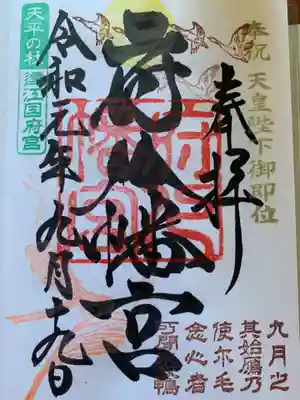 奉祝 天皇陛下御即位
奉拝
府八幡宮
令和元年九月十九日
天平の杜 遠江国府宮
九月之
其始鴈乃
使尓毛
念心者
可聞 鴨